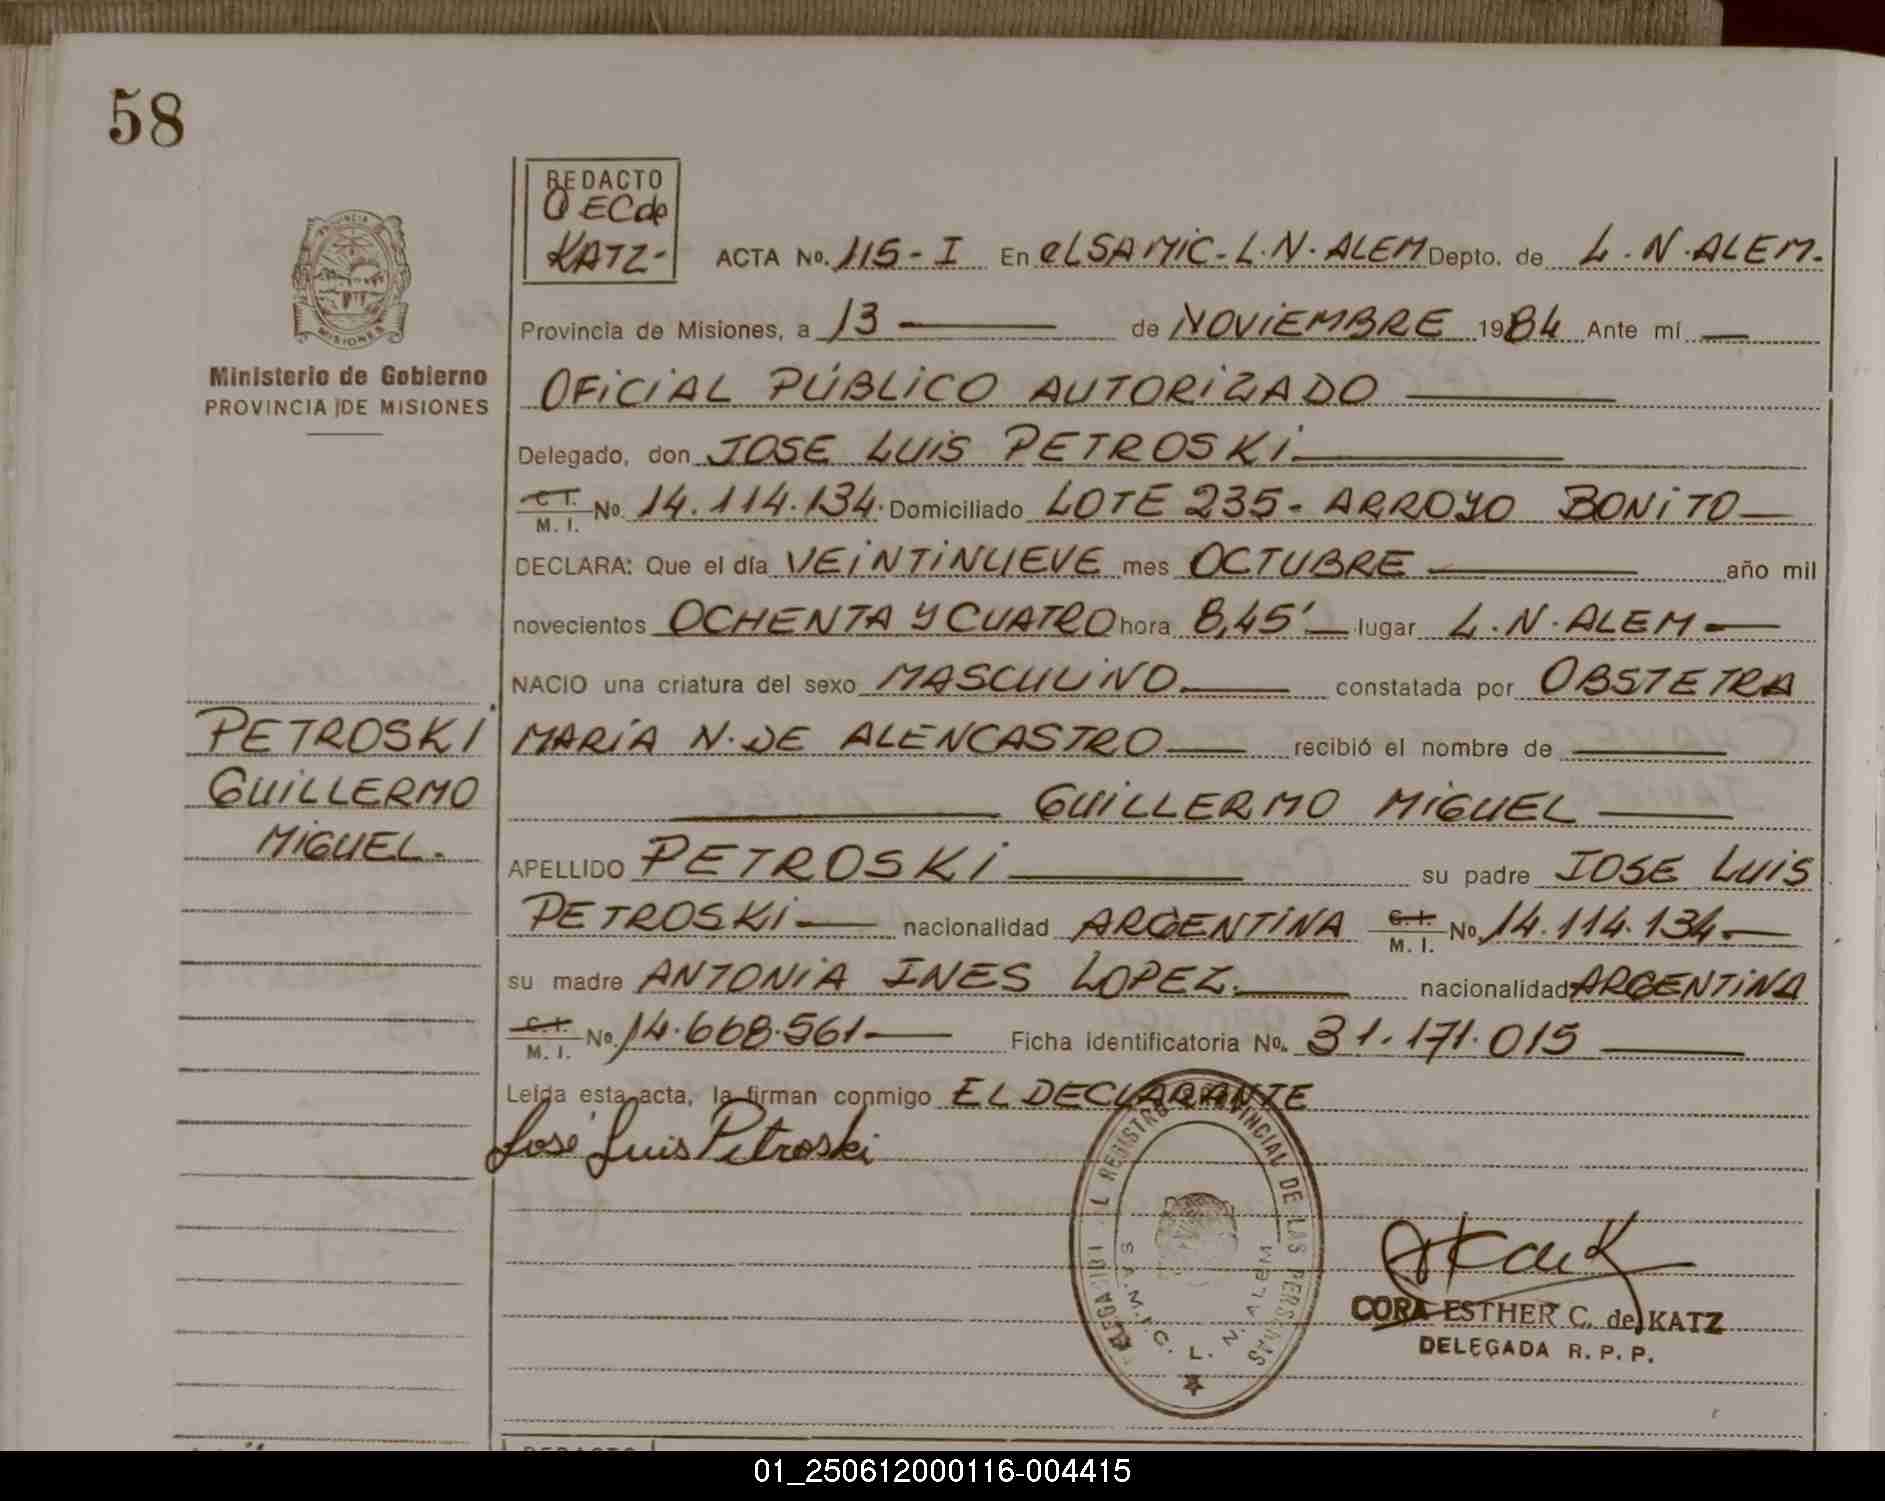 58
REDACTO
O EC de
KATZ-
ACTA No. 115-I En el SAMIC-L.N.ALEM Depto. de L.N.ALEM.
Provincia de Misiones, a 13 — de NOVIEMBRE 1984 Ante mí —
Ministerio de Gobierno
PROVINCIA DE MISIONES
OFICIAL PÚBLICO AUTORIZADO —
Delegado, don JOSE LUIS PETROSKI —
C.I. / M. I. No. 14.114.134. Domiciliado LOTE 235- ARROYO BONITO —
DECLARA: Que el día VEINTINUEVE mes OCTUBRE — año mil
novecientos OCHENTA Y CUATRO hora 8,45' — lugar L.N.ALEM —
NACIO una criatura del sexo MASCULINO — constatada por OBSTETRA
MARÍA N. DE ALENCASTRO — recibió el nombre de —
— GUILLERMO MIGUEL —
PETROSKI
GUILLERMO
MIGUEL.
APELLIDO PETROSKI — su padre JOSE LUIS
PETROSKI — nacionalidad ARGENTINA C.I. / M. I. No. 14.114.134 —
su madre ANTONIA INES LOPEZ. — nacionalidad ARGENTINA
C.I. / M. I. No. 14.668.561 — Ficha identificatoria No. 31.171.015 —
Leída esta acta, la firman conmigo EL DECLARANTE
José Luis Petroski
REGISTRO PROVINCIAL DE LAS PERSONAS
S.A.M.I.C. L. N. ALEM
CORA ESTHER C. de KATZ
DELEGADA R. P. P.
REDACTO
01_250612000116-004415